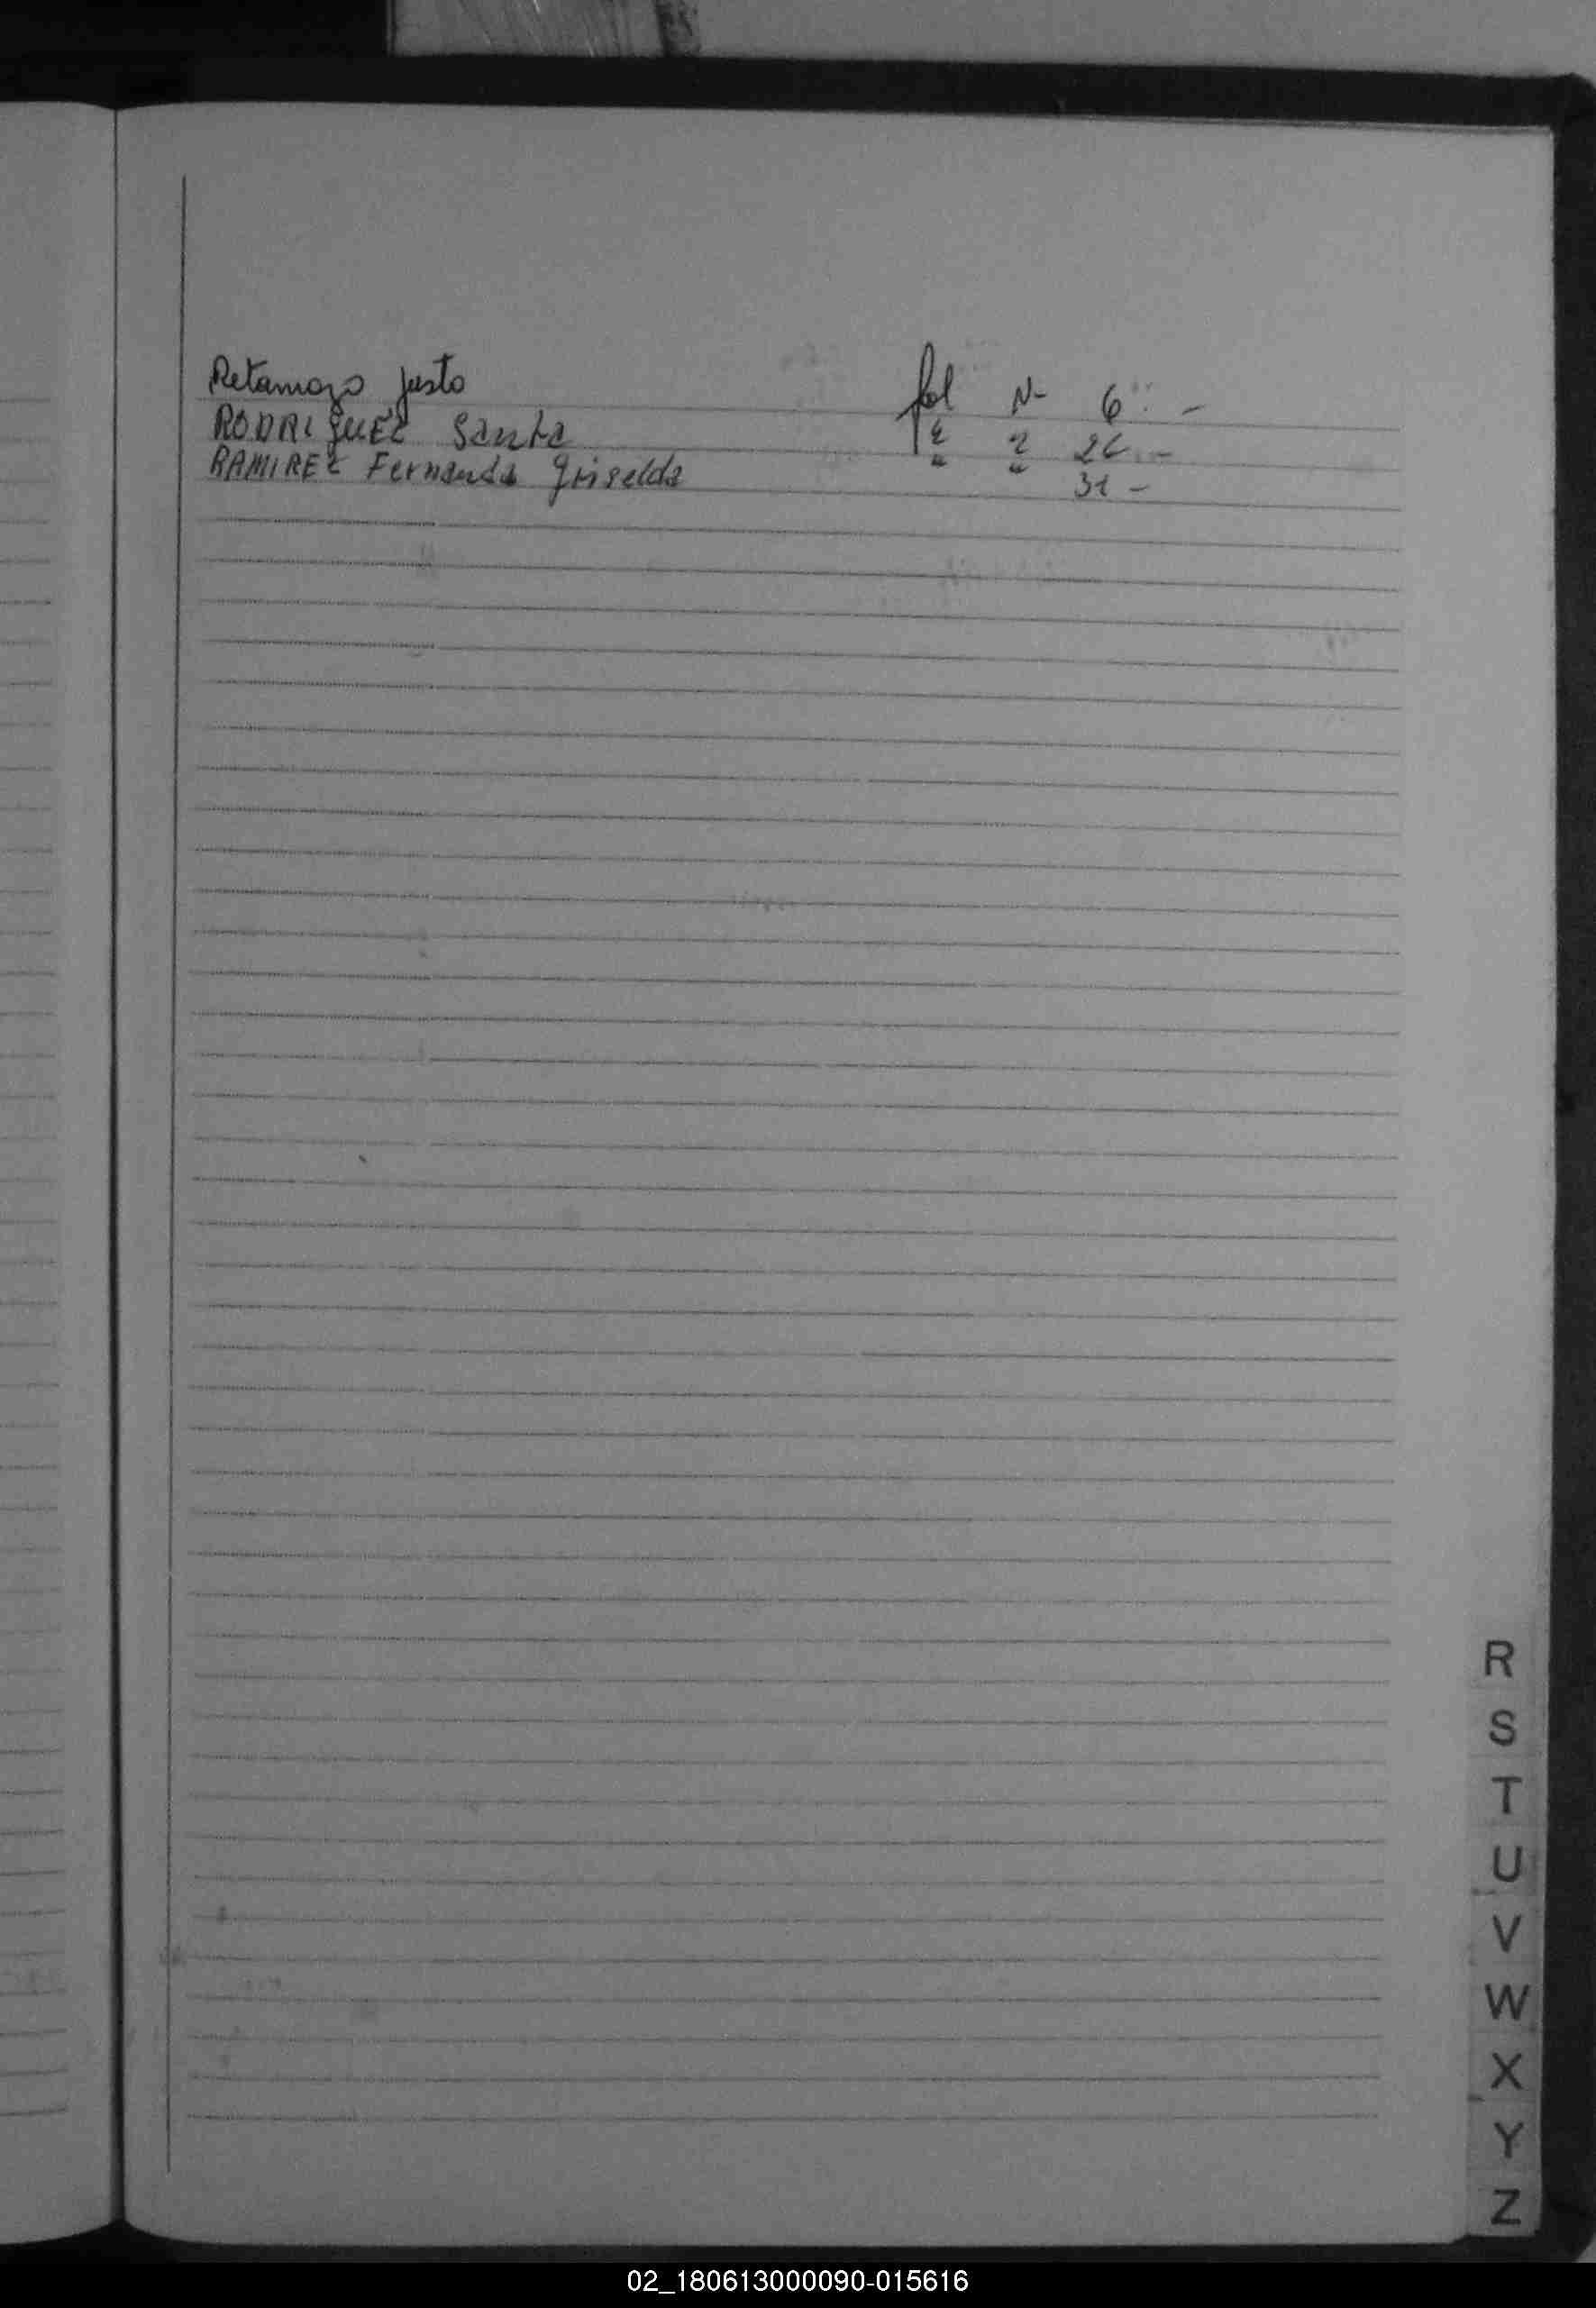 Retamozo Justo fol N- 6 -
RODRIGUEZ Santa " " 26 -
RAMIREZ Fernanda Griselda " " 31 -
R
S
T
U
V
W
X
Y
Z
02_180613000090-015616